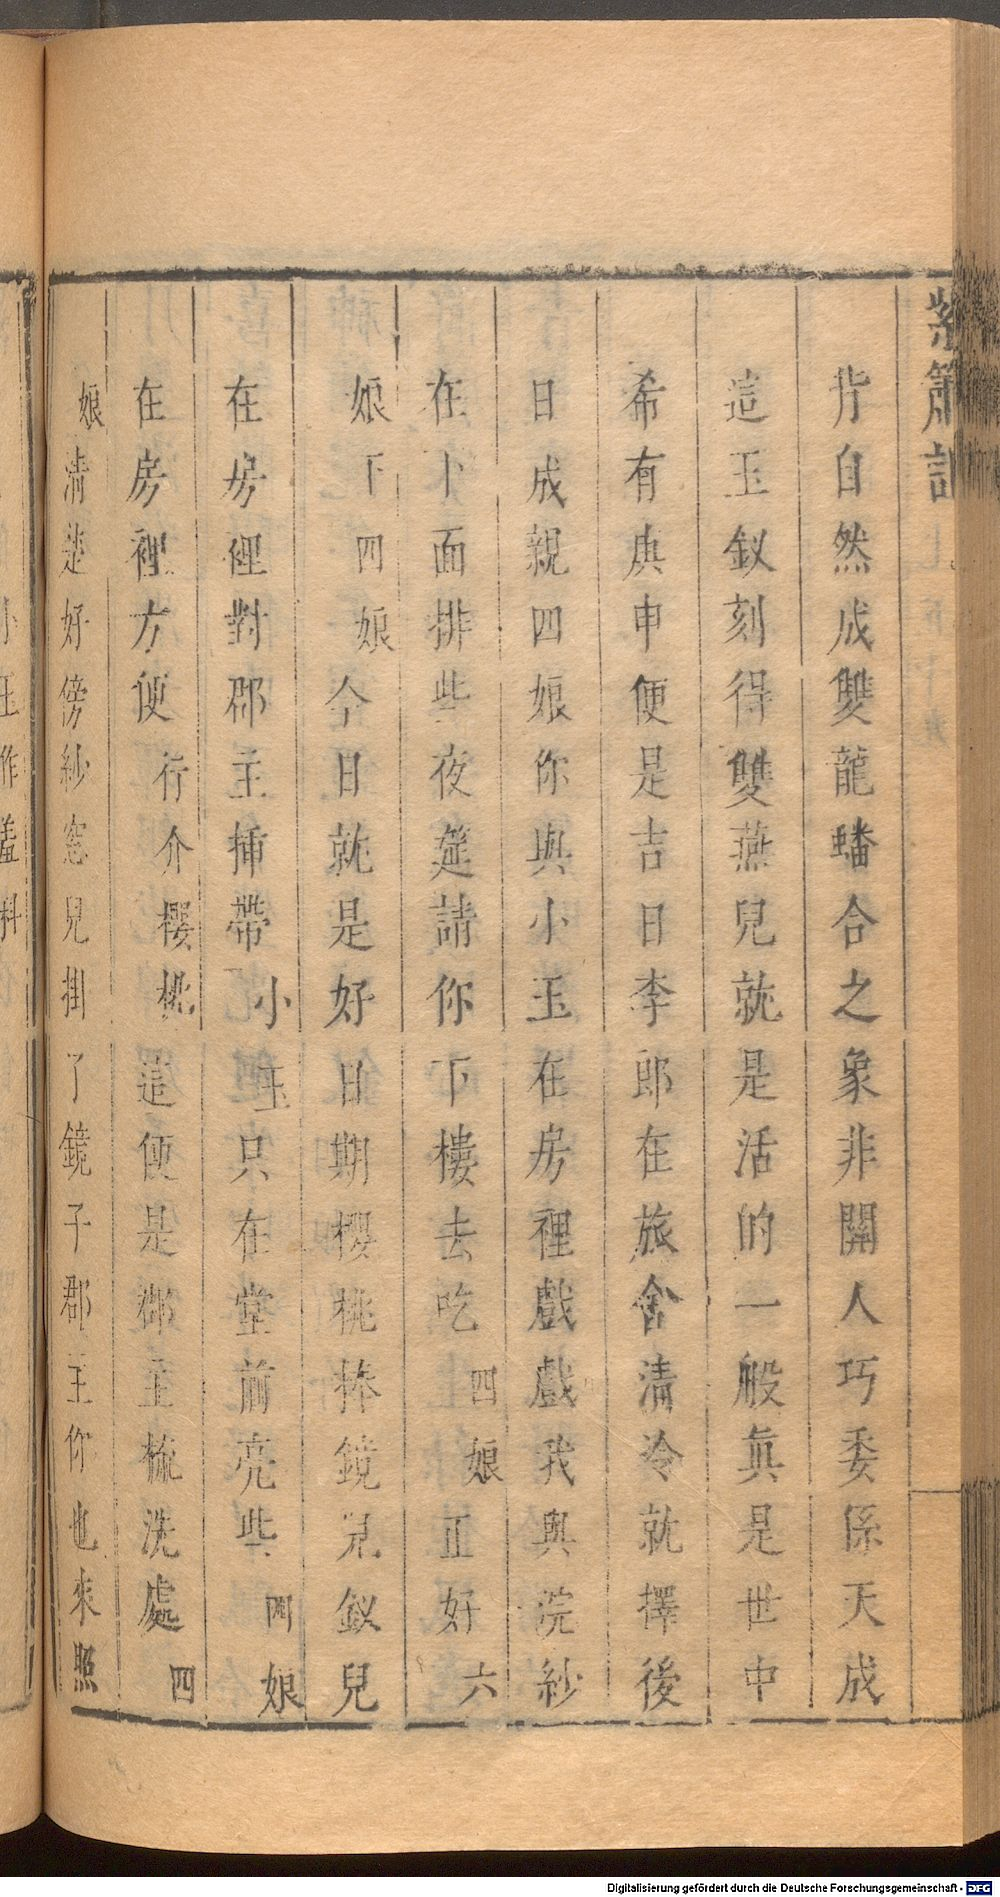 紫簫記
背自然成雙龍蟠合之象非關人巧委係天成
這玉釵刻得雙燕兒就是活的一般眞是世中
希有庚申便是吉日李郎在旅舍清冷就擇後
日成親四娘你與小玉在房裡戲戲我與浣紗
在卜面排些夜筵請你下樓去吃四娘正好六
娘下四娘今日就是好日期櫻桃捧鏡兒釵兒
在房裡對郡主揷帶小玉只在堂前亮些四娘
在房裡方便行介櫻桃這便是郡主梳洗處四
娘淸楚好傍紗窓兒掛了鏡子郡主你也來照
Digitalisierung gefördert durch die Deutsche Forschungsgemeinschaft - DFG